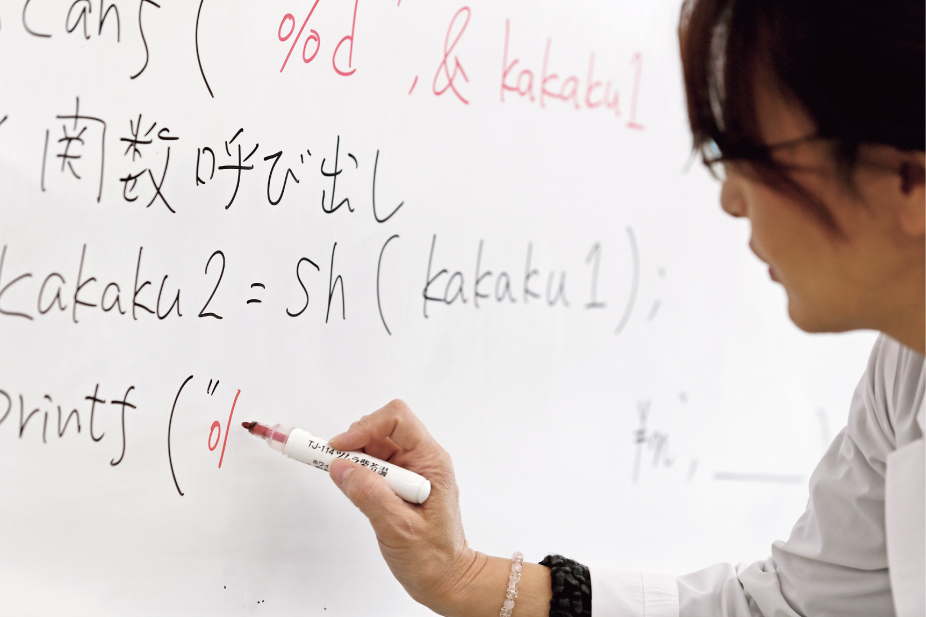 canf ( "%d", & kakaku1
関数呼び出し
kakaku2 = sh ( kakaku1 );
printf ( " %
¥n", ____ )
TJ-114 ツムラ柴苓湯